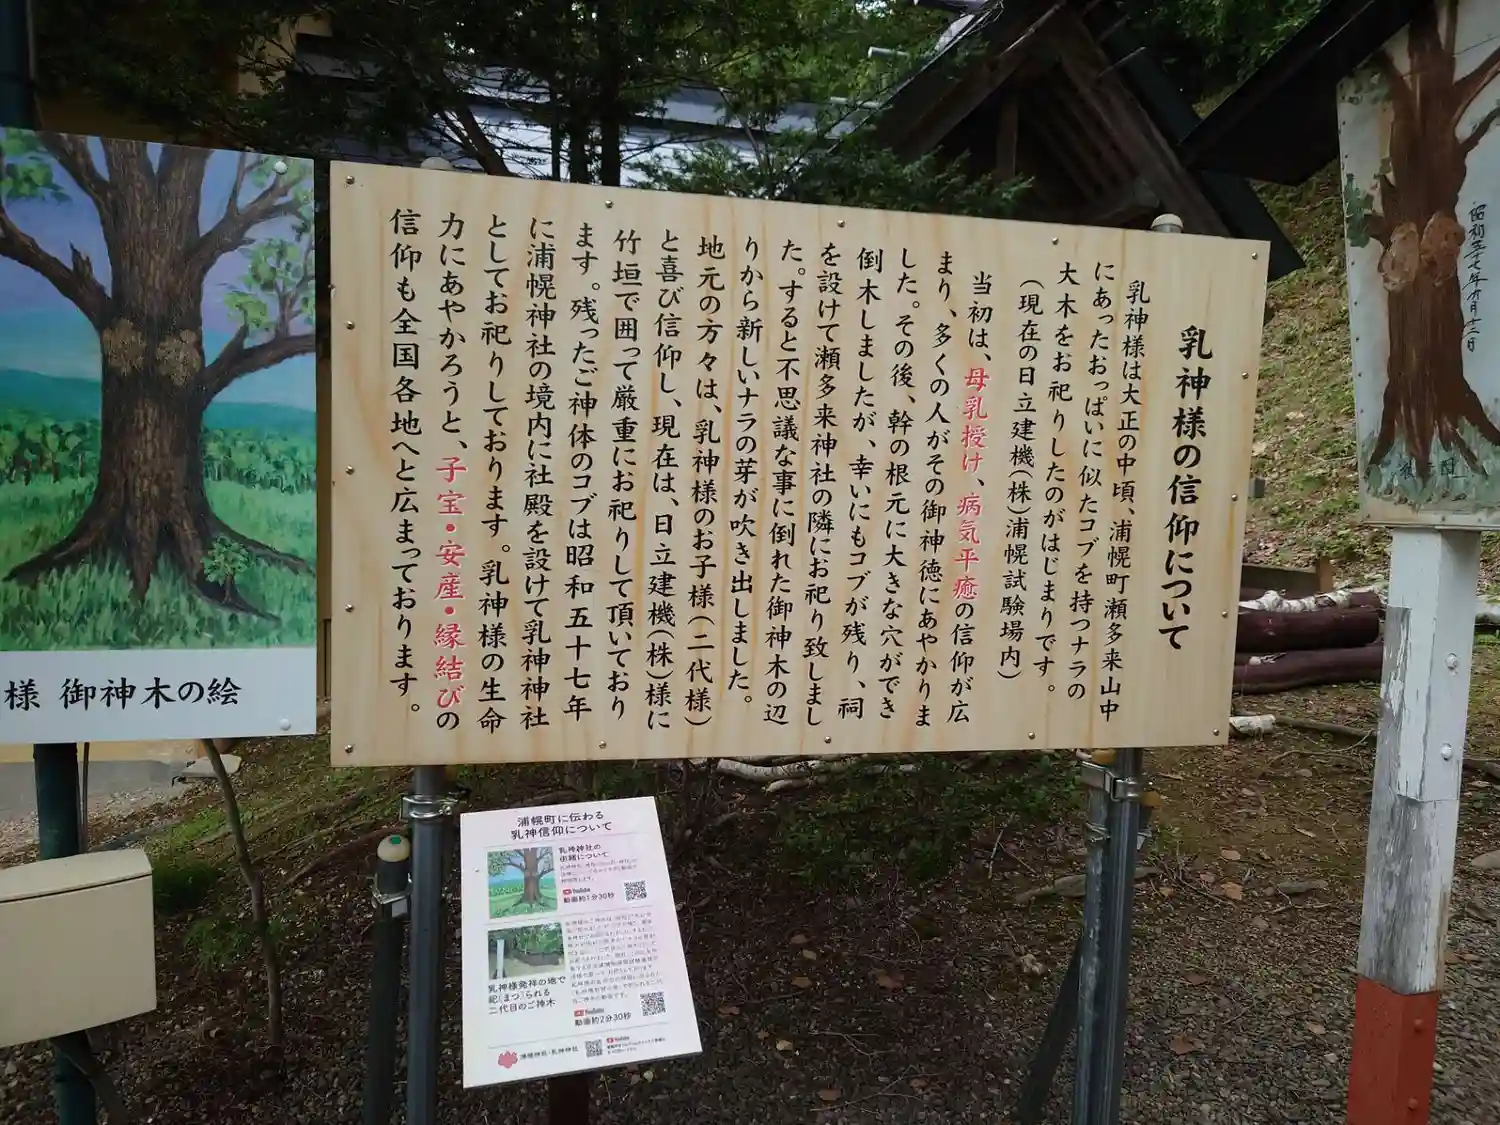 乳神様の信仰について
乳神様は大正の中頃、浦幌町瀬多来山中
にあったおっぱいに似たコブを持つナラの
大木をお祀りしたのがはじまりです。
(現在の日立建機(株)浦幌試験場内)
当初は、母乳授け、病気平癒の信仰が広
まり、多くの人がその御神徳にあやかりま
した。その後、幹の根元に大きな穴ができ
倒木しましたが、幸いにもコブが残り、祠
を設けて瀬多来神社の隣にお祀り致しまし
た。すると不思議な事に倒れた御神木の辺
りから新しいナラの芽が吹き出しました。
地元の方々は、乳神様のお子様(二代様)
と喜び信仰し、現在は、日立建機(株)様に
竹垣で囲って厳重にお祀りして頂いており
ます。残ったご神体のコブは昭和五十七年
に浦幌神社の境内に社殿を設けて乳神神社
としてお祀りしております。乳神様の生命
力にあやかろうと、子宝・安産・縁結びの
信仰も全国各地へと広まっております。
様 御神木の絵
昭和五十七年六月十二日
浦幌町に伝わる
乳神信仰について
乳神神社の
由緒について
YouTube
動画約1分30秒
乳神様発祥の地で
祀(まつ)られる
二代目のご神木
YouTube
動画約2分30秒
浦幌神社・乳神神社
YouTube